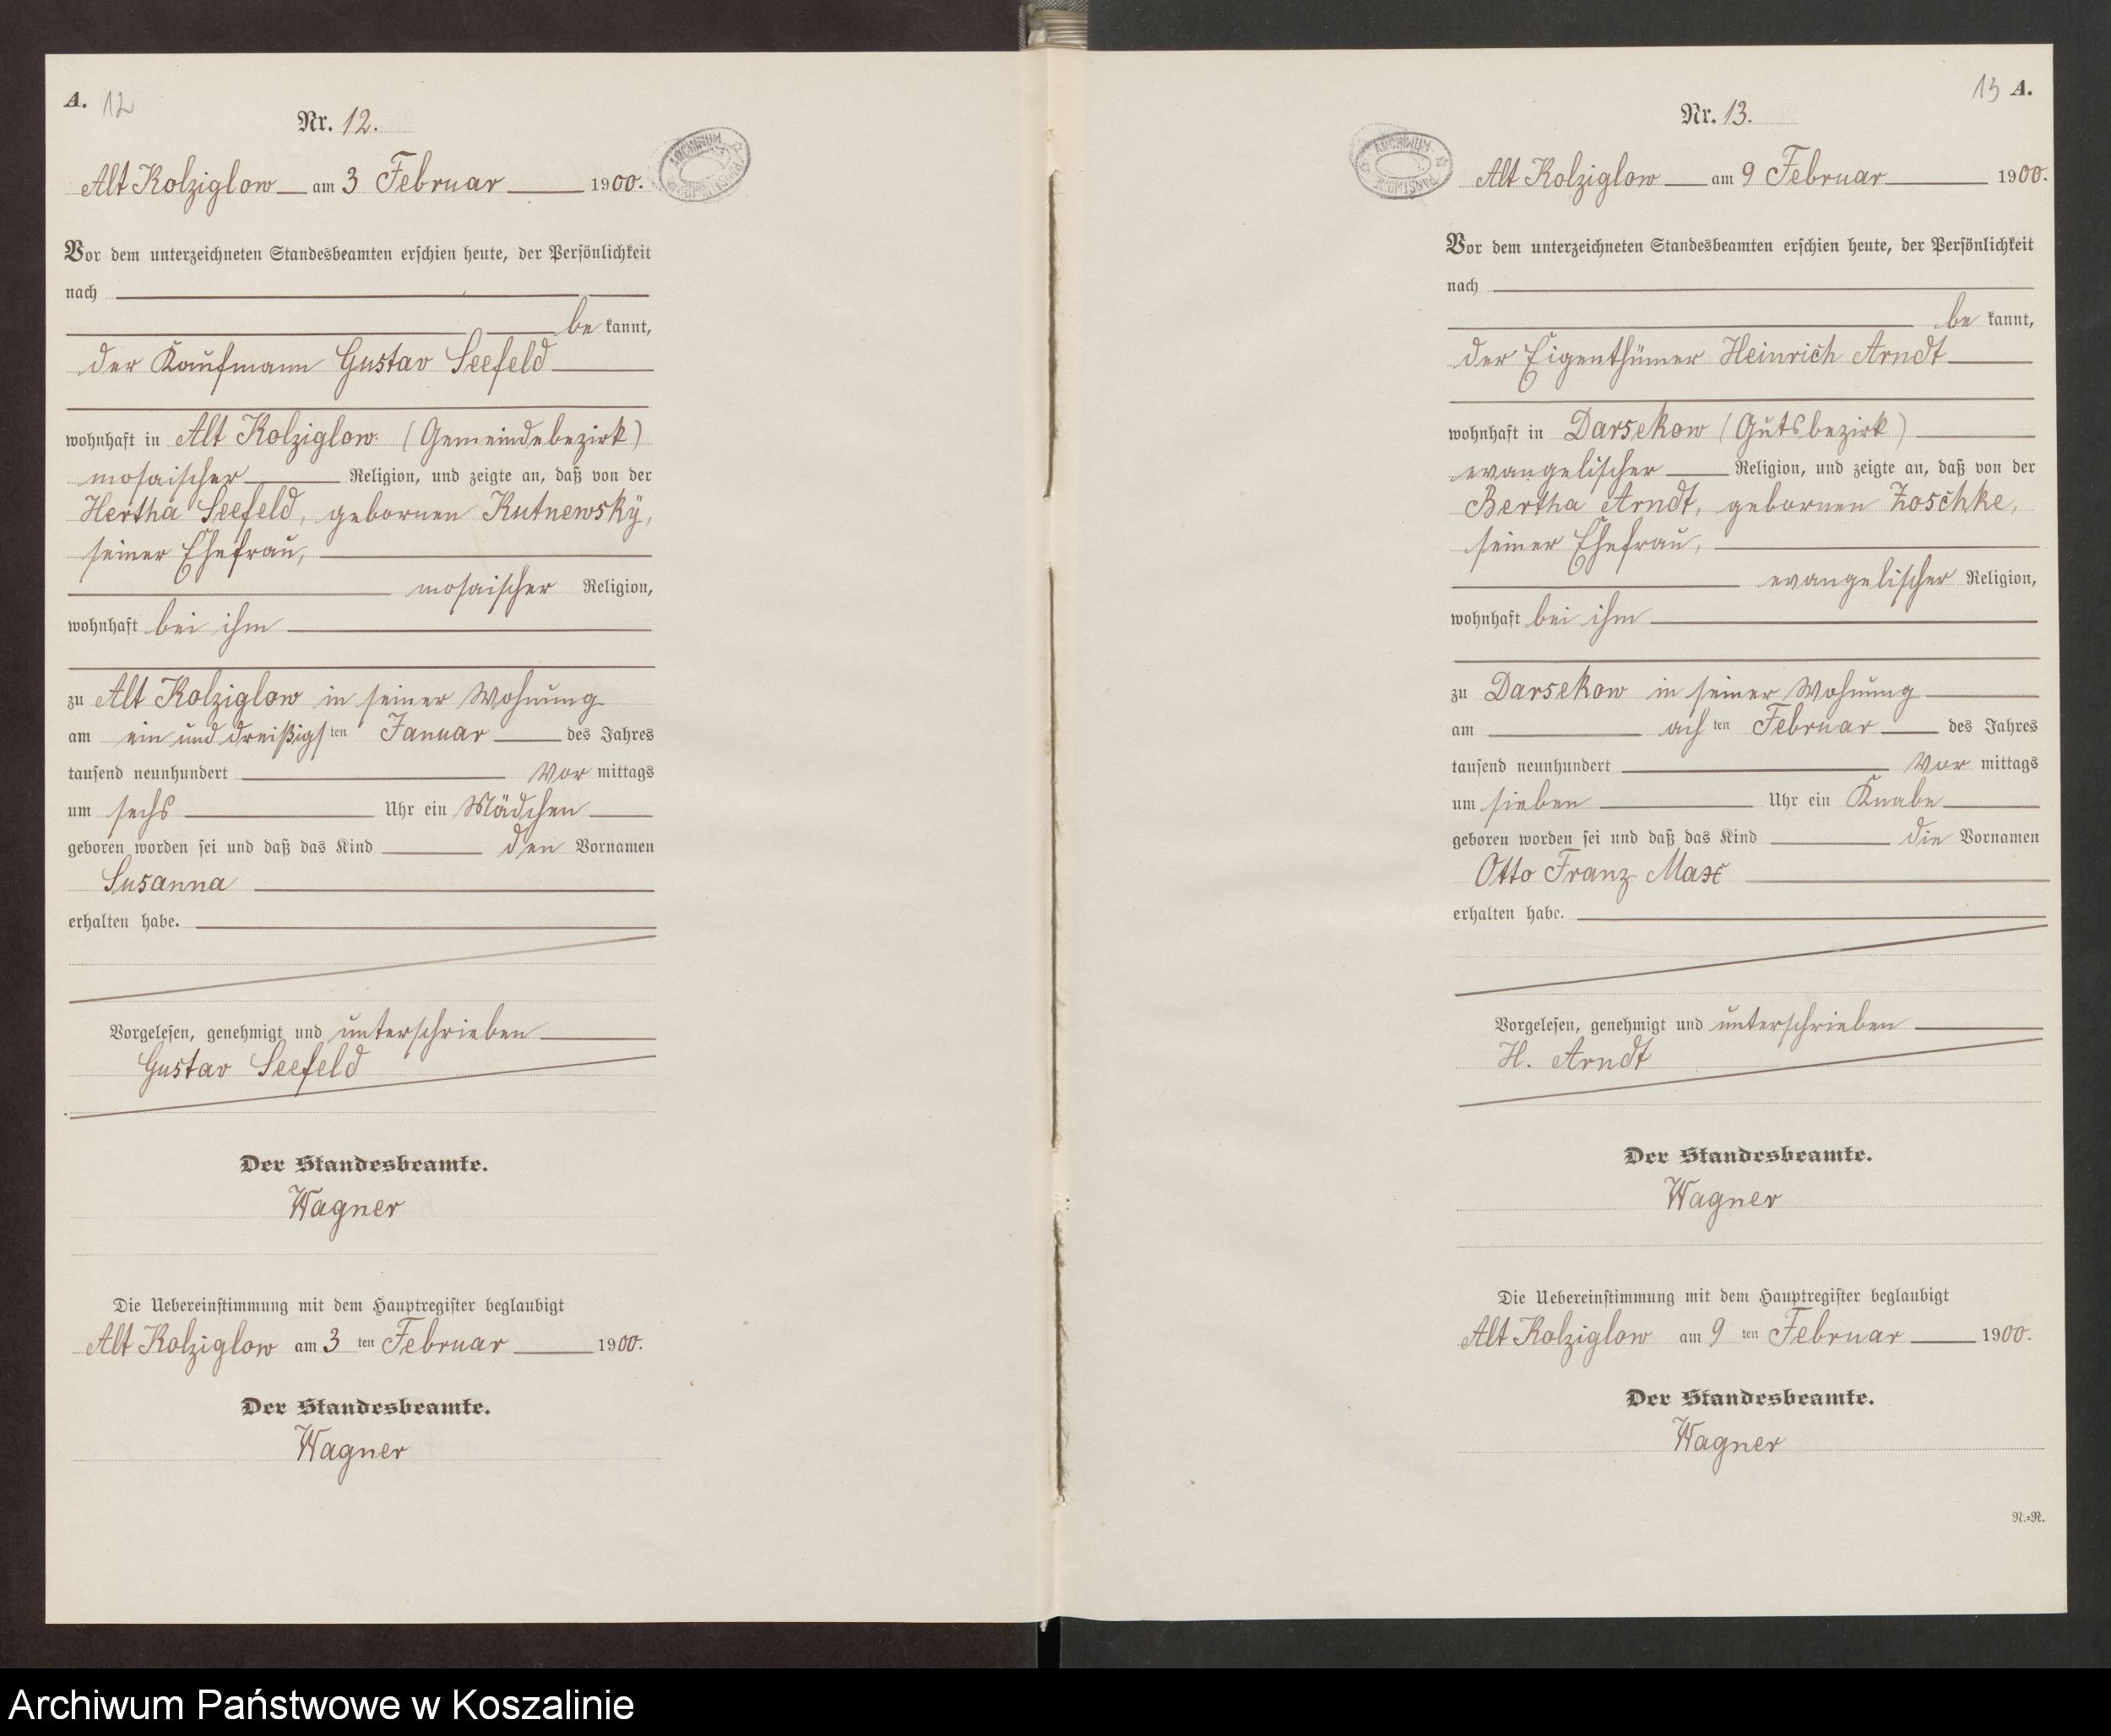 A. 12
Nr. 12.
Alt Kolziglow am 3 Februar 1900.
Vor dem unterzeichneten Standesbeamten erschien heute, der Persönlichkeit
nach
be kannt,
der Kaufmann Gustav Seefeld
wohnhaft in Alt Kolziglow (Gemeindebezirk)
mosaischer Religion, und zeigte an, daß von der
Hertha Seefeld, gebornen Kutnewsky,
seiner Ehefrau,
mosaischer Religion,
wohnhaft bei ihm
zu Alt Kolziglow in seiner Wohnung
am ein und dreißigsten Januar des Jahres
tausend neunhundert Vor mittags
um sechs Uhr ein Mädchen
geboren worden sei und daß das Kind den Vornamen
Susanna
erhalten habe.
Vorgelesen, genehmigt und unterschrieben
Gustav Seefeld
Der Standesbeamte.
Wagner
Die Uebereinstimmung mit dem Hauptregister beglaubigt
Alt Kolziglow am 3 ten Februar 1900.
Der Standesbeamte.
Wagner
13 A.
Nr. 13.
Alt Kolziglow am 9 Februar 1900.
Vor dem unterzeichneten Standesbeamten erschien heute, der Persönlichkeit
nach
be kannt,
der Eigenthümer Heinrich Arndt
wohnhaft in Darsekow (Gutsbezirk)
evangelischer Religion, und zeigte an, daß von der
Bertha Arndt, gebornen Zoschke,
seiner Ehefrau,
evangelischer Religion,
wohnhaft bei ihm
zu Darsekow in seiner Wohnung
am ach ten Februar des Jahres
tausend neunhundert Vor mittags
um sieben Uhr ein Knabe
geboren worden sei und daß das Kind die Vornamen
Otto Franz Max
erhalten habe.
Vorgelesen, genehmigt und unterschrieben
H. Arndt
Der Standesbeamte.
Wagner
Die Uebereinstimmung mit dem Hauptregister beglaubigt
Alt Kolziglow am 9 ten Februar 1900.
Der Standesbeamte.
Wagner
N.=R.
Archiwum Państwowe w Koszalinie